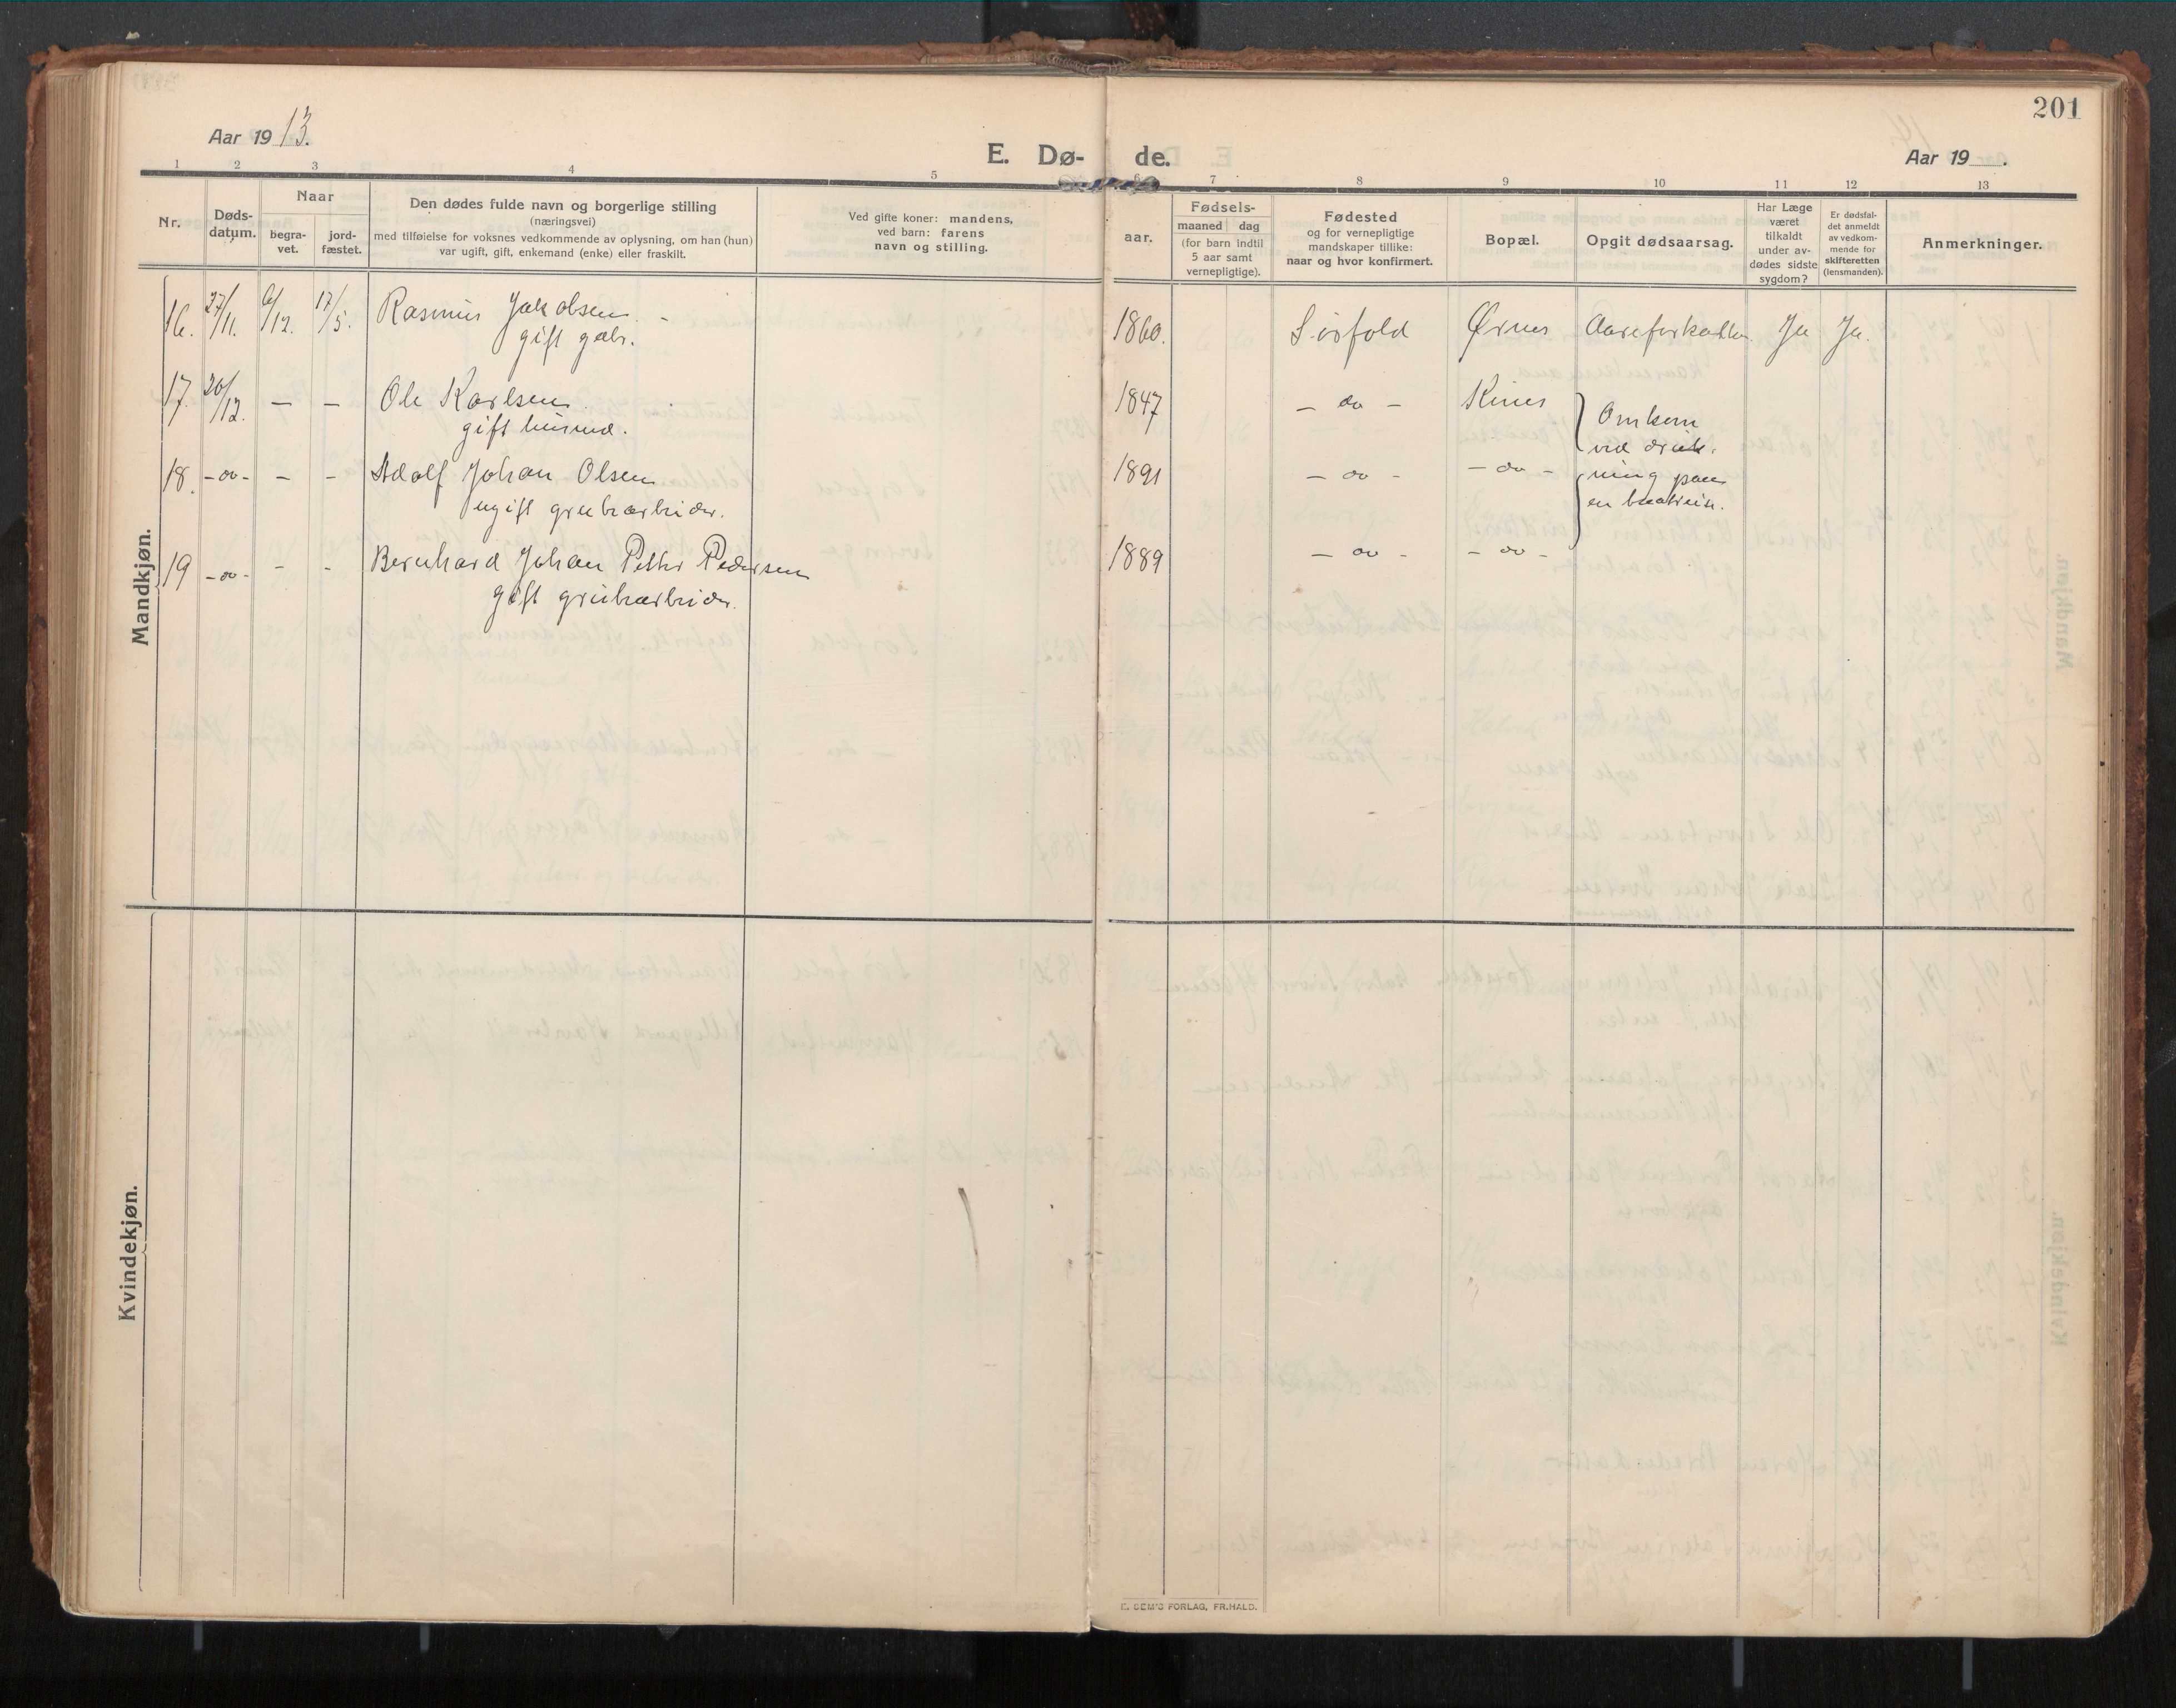 201
Aar 1913.
E. Dø- de.
Aar 19 .
1 2 3 4 5 6 7 8 9 10 11 12 13
Nr.
Døds-
datum.
Naar
begra-
vet.
jord-
fæstet.
Den dødes fulde navn og borgerlige stilling
(næringsvei)
med tilføielse for voksnes vedkommende av oplysning, om han (hun)
var ugift, gift, enkemand (enke) eller fraskilt.
Ved gifte koner: mandens,
ved barn: farens
navn og stilling.
Fødsels-
aar.
maaned dag
(for barn indtil
5 aar samt
vernepligtige).
Fødested
og for vernepligtige
mandskaper tillike:
naar og hvor konfirmert.
Bopæl.
Opgit dødsaarsag.
Har Læge
været
tilkaldt
under av-
dødes sidste
sygdom?
Er dødsfal-
det anmeldt
av vedkom-
mende for
skifteretten
(lensmanden).
Anmerkninger.
Mandkjøn.
16. 27/11. 6/12. 17/5. Rasmus Jakobsen. - 1860. Sørfold Ørnes Aareforkalkn. Ja Ja.
gift gabr.
17. 20/12. — — Ole Karlsen. 1847 — do — Kines Omkom
gift husmd. ved druk-
18. - do - - - Adolf Johan Olsen 1891 — do - - do - ning paa
ugift grubearbeider. en baatreise.
19 - do - - - Bernhard Johan Petter Pedersen 1889 — do - - do -
gift grubearbeider.
Kvindekjøn.
E. SEM'S FORLAG, FR.HALD.